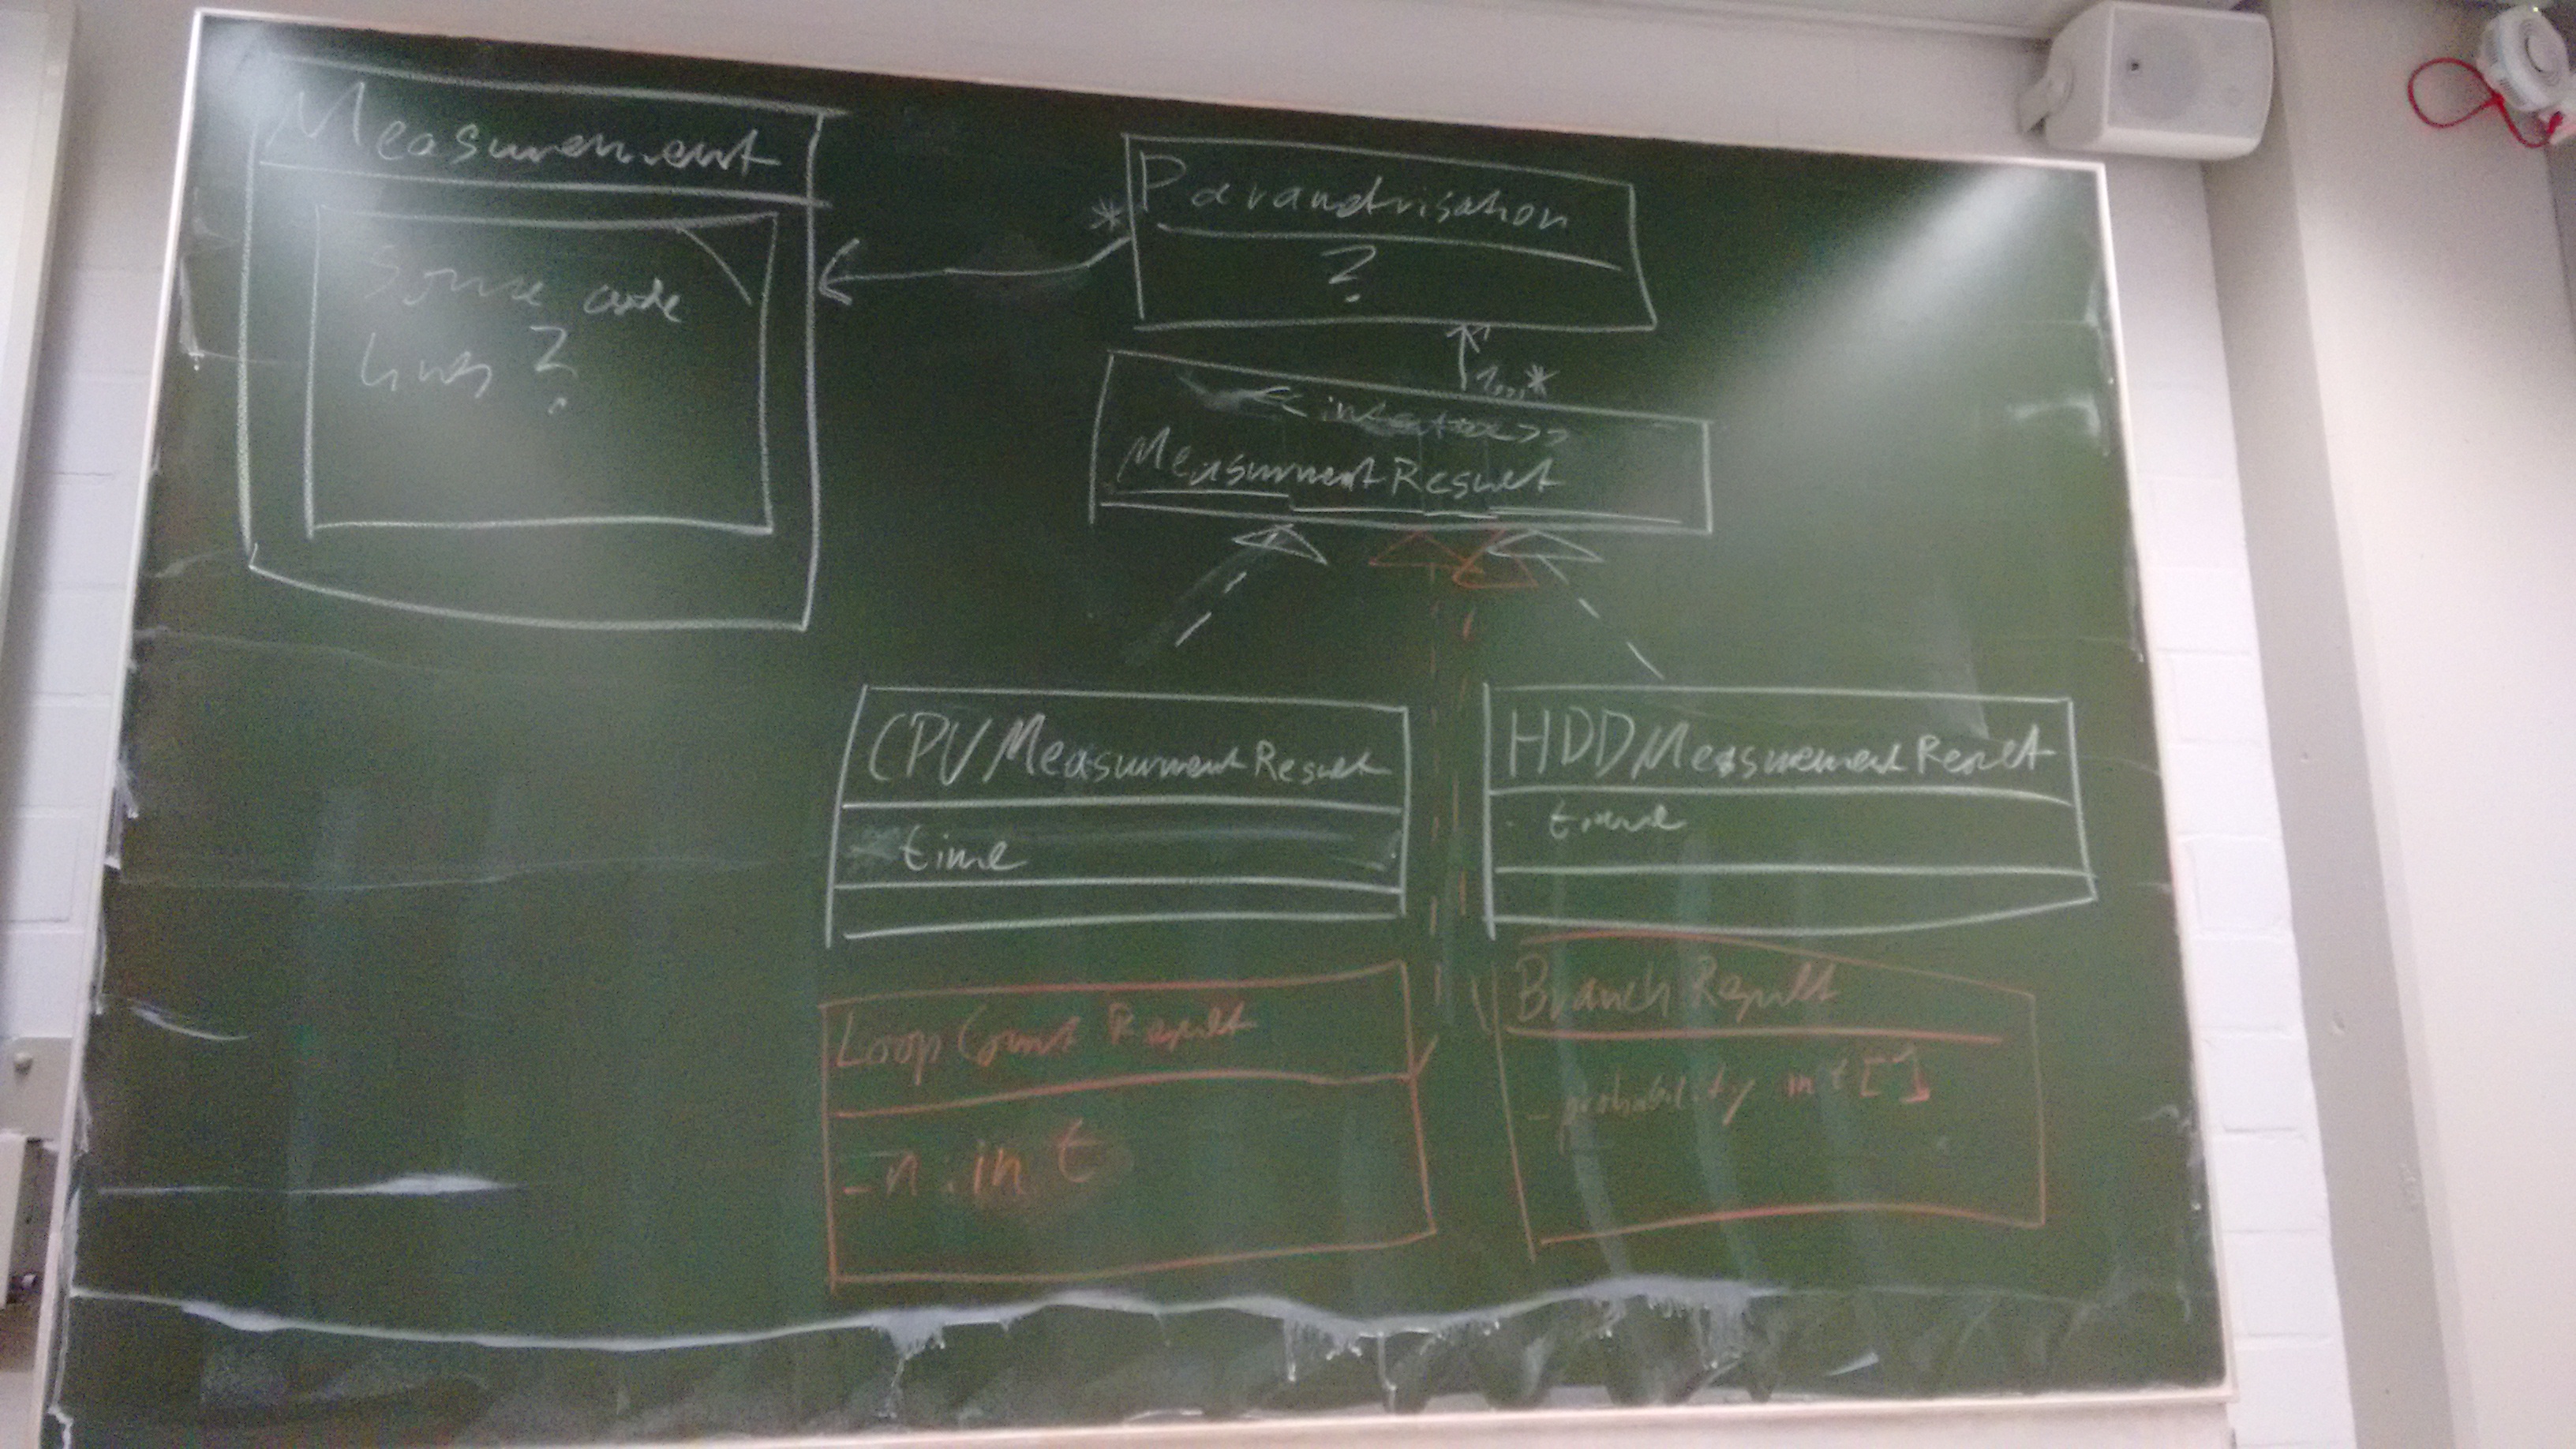 Measurement
Source code
lines ?
*
Parametrisation
?
1...*
<<interface>>
MeasurmentResult
CPUMeasurmentResult
time
HDDMeasurementResult
- time
Loop Count Result
- n : int
Branch Result
- probability int[]